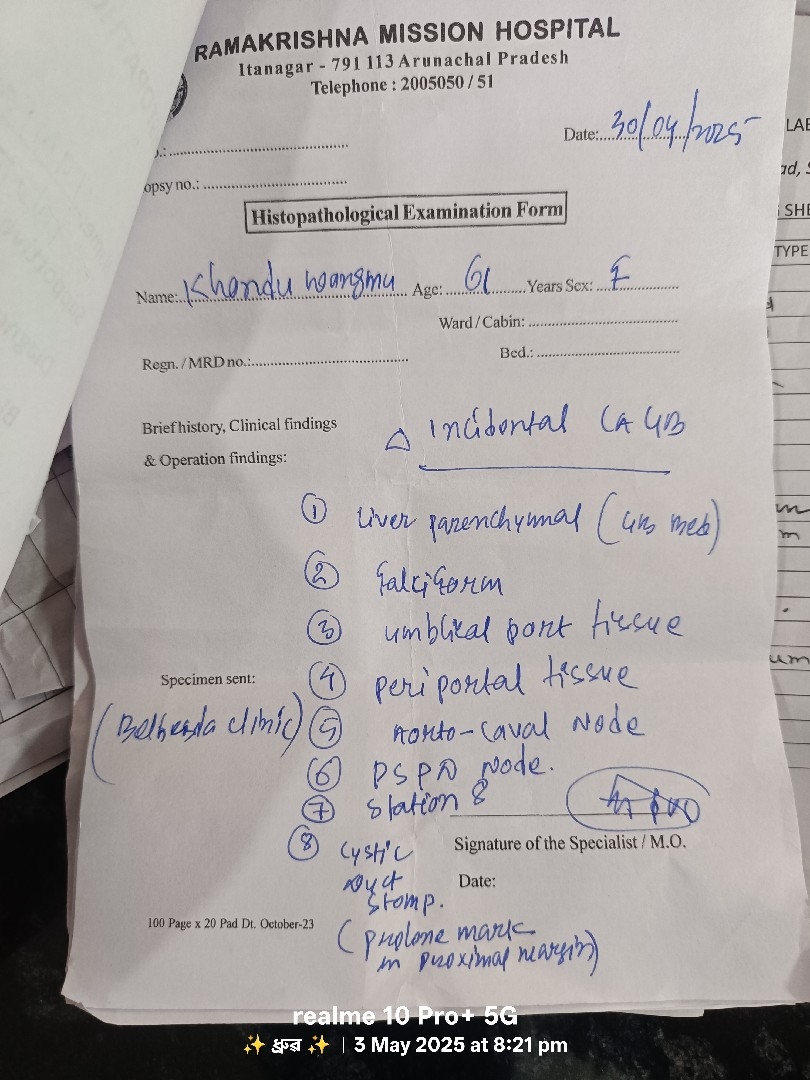 RAMAKRISHNA MISSION HOSPITAL
Itanagar - 791 113 Arunachal Pradesh
Telephone : 2005050 / 51
Date: 30/04/2025
opsy no.:
Histopathological Examination Form
Name: Khandu Age: 61 Years Sex: F
Ward / Cabin:
Regn. / MRD no.:
Bed.:
Brief history, Clinical findings
& Operation findings:
△ Incidental CA GB
① Liver parenchymal (GB Bed)
② falciform
③ umblical port tissue
Specimen sent:
④ periportal tissue
(Bethesda clinic)
⑤ Aorto-caval Node
⑥ PSPD Node.
⑦ Station 8
⑧ Cystic
Duct
Stomp.
Signature of the Specialist / M.O.
Date:
100 Page x 20 Pad Dt. October-23
(prolone mark
in proximal margin)
LAB
ad, S
SHE
TYPE
realme 10 Pro+ 5G
✨ ✨ | 3 May 2025 at 8:21 pm